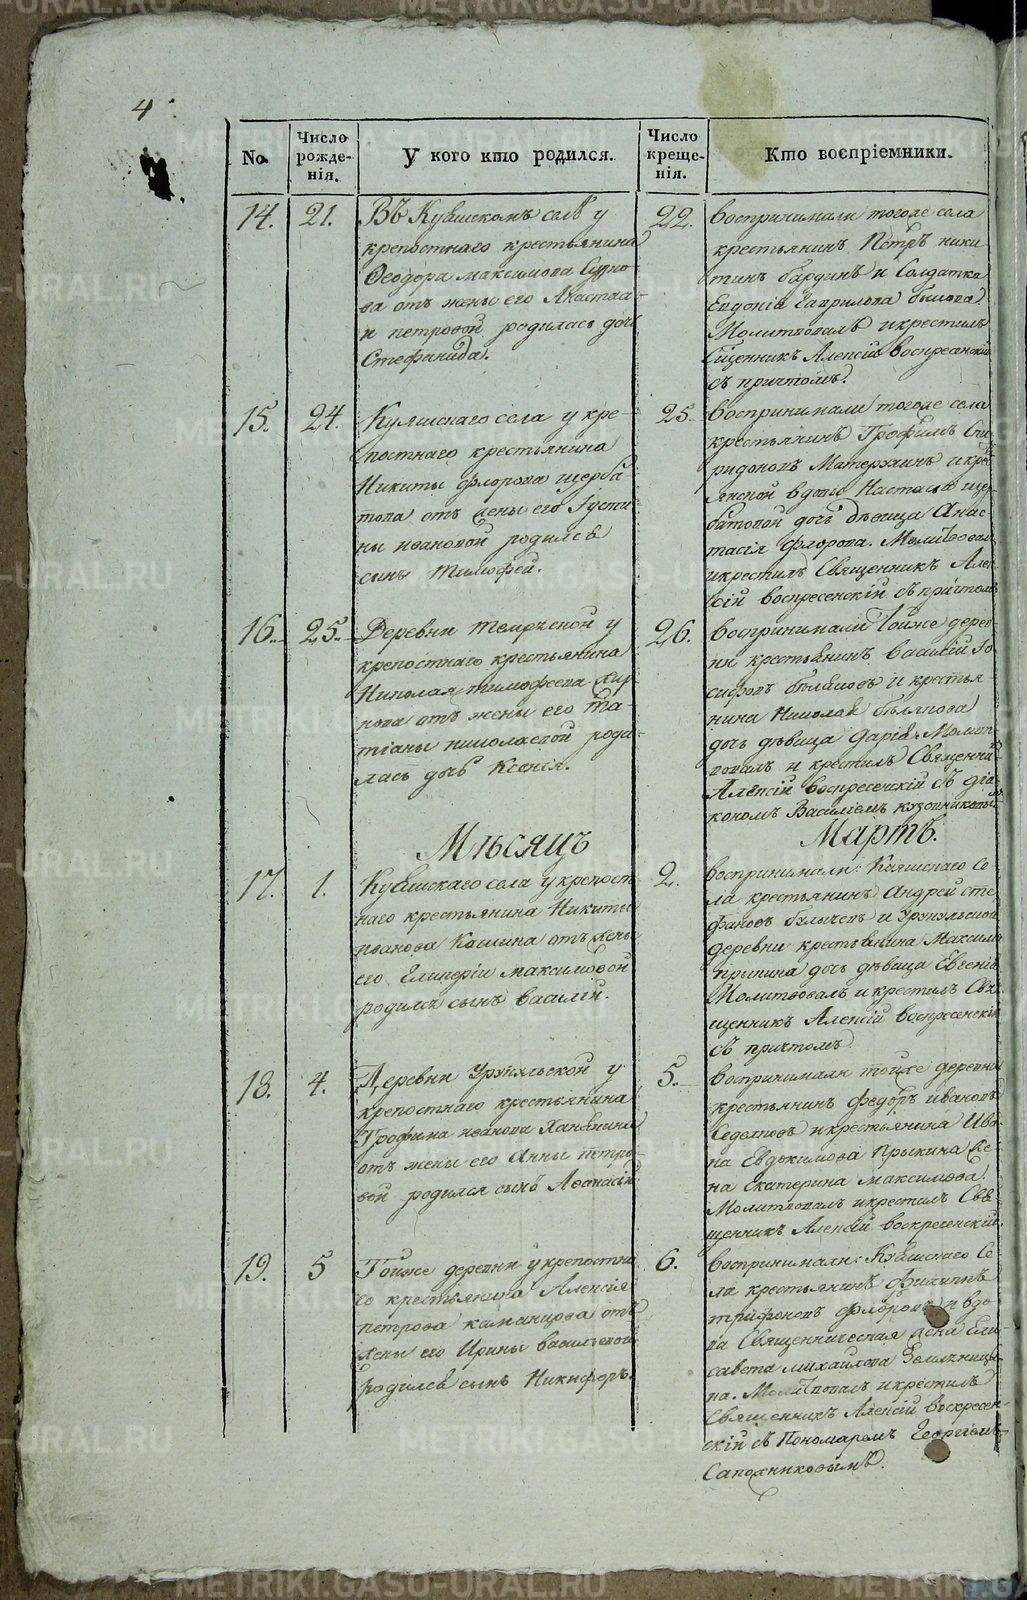 4
No.
Число рожде-нія.
У кого кто родился.
Число креще-нія.
Кто воспріемники.
14. 21.
Въ Куяшскомъ селѣ у
крепостнаго крестьянина
Ѳеодора Максимова
ва отъ жены его Анастаси
и Петровой родилась дочь
Стефанида.
22.
Воспринимали тогоже села
крестьянинъ Петръ Ники
тинъ и Солдатка
Евдокія Гаврилова
Молитвовалъ и крестилъ
Священникъ Алексій Воспресенскій
съ причтомъ.
15. 24.
Куяшскаго села у кре-
постнаго крестьянина
Никиты Флорова Щерба
това отъ жены его Густи
ны Ивановой родился
сынъ Тимофей.
25.
Воспринимали тогоже села
крестьянинъ Трофимъ Спи
ридоновъ и кре
янской вдовы Настасьи Щер
батовой дочь дѣвица Анас
тасія Флорова. Молитвовалъ
и крестилъ Священникъ Алек
сій Воспресенскій съ причтомъ
16. 25.
Деревни у
крепостнаго крестьянина
Николая Тимофеева
нова отъ жены его Та
тіаны Николаевой роди-
лась дочь Ксенія.
26.
Воспринимали Тойже дерев
ни крестьянинъ Василій Іо
сифовъ и крестья-
нина Николая
дочь дѣвица Дарія. Молит
вовалъ и крестилъ Священни
Алексій Воспресенскій съ дія
кономъ Василіемъ
Мѣсяцъ Мартъ.
17. 1.
Куяшскаго села у крепост
наго крестьянина Никиты
Иванова Кашина отъ жены
его Гликеріи Максимовой
родился сынъ Василій.
2.
Воспринимали: Куяшскаго Се
ла крестьянинъ Андрей Сте
фановъ Булычевъ и
деревни крестьянина Максима
Прыкина дочь дѣвица Евгенія
Молитвовалъ и крестилъ Свя
щенникъ Алексій Воспресенскій
съ причтомъ
18. 4.
Деревни у
крепостнаго крестьянина
Трофима Иванова
отъ жены его Анны Петро-
вой родился сынъ Аѳанасій
5.
Воспринимали тойже деревни
крестьянинъ Федоръ Ивановъ
и крестьянина Ива
на Евдокимова Прыкина же-
на Екатерина Максимова.
Молитвовалъ и крестилъ Свя
щенникъ Алексій Воскресенскій.
19. 5
Тойже деревни у крепостна
го крестьянина Алексія
Петрова отъ
жены его Ирины Васильевой
родился сынъ Никифоръ.
6.
Воспринимали: Куяшскаго Се
ла крестьянинъ Филиппъ
Трифоновъ Флоровъ и вдо
ва Священническая жена Ели
савета Михайлова Земляницы
на. Молитвовалъ и крестилъ
Священникъ Алексій Воскресен
скій съ Пономаремъ Георгіемъ
Сапожниковымъ.
METRIKI.GASO-URAL.RU